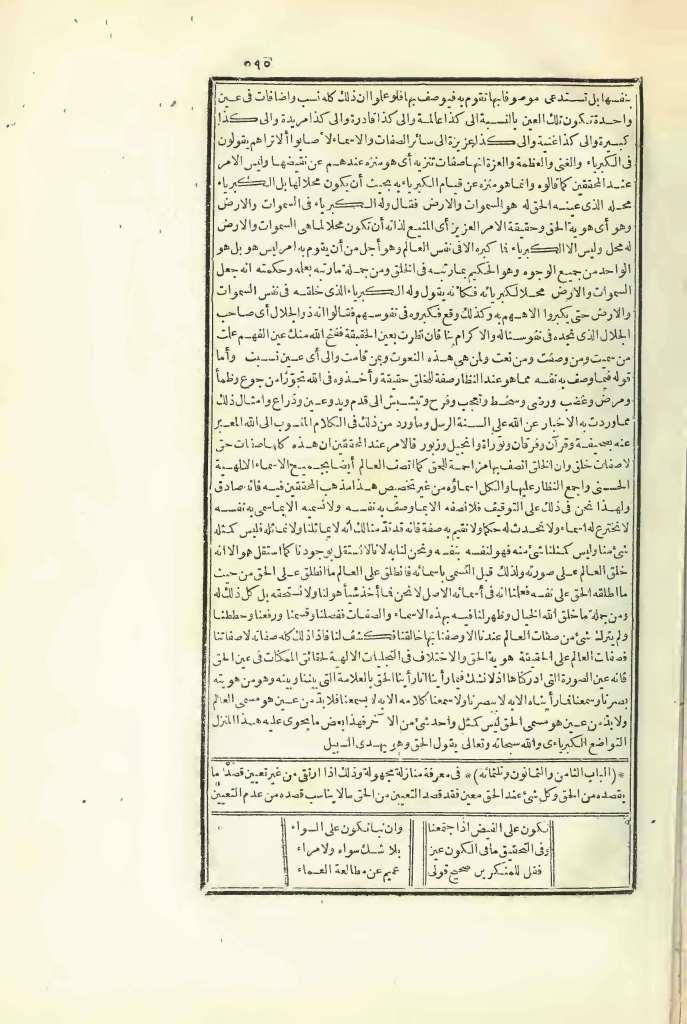 ٥٩٥
بنفسها بل تستدعى موصوفا بها تقوم به فيوصف بها فلو علموا ان ذلك كله نسب واضافات فى عين
واحدة تكون تلك العين بالنسبة الى كذا عالمة والى كذا قادرة والى كذا مريدة والى كذا
كبيرة والى كذا غنية والى كذا عزيزة الى سائر الصفات والاسماء لأصابوا ألا تراهم يقولون
فى الكبرياء والغنى والعظمة والعزة انها صفات تنزيه أى هو منزه عندهم عن نقيضها وليس الامر
عند المحققين كما قالوه وانما هو منزه عن قيام الكبرياء به بحيث أن يكون محلا لها بل الكبرياء
محله الذى عينه الحق له هو السموات والارض فقال وله الكبرياء فى السموات والارض
وهو أى هوية الحق وحقيقة الامر العزيز أى المنيع لذاته أن تكون محلا لما هى السموات والارض
له محل وليس الا الكبرياء فما كبره الا فى نفس العالم وهو أجل من أن يقوم به أمر ليس هو بل هو
الواحد من جميع الوجوه وهو الحكيم بما رتبه فى الخلق ومن جملة ما رتبه بعلمه وحكمته انه جعل
السموات والارض محلا لكبريائه فكأنه يقول وله الكبرياء الذى خلقه فى نفس السموات
والارض حتى يكبروا الاههم به وكذلك وقع فكبروه فى نفوسهم فقالوا انه ذو الجلال أى صاحب
الجلال الذى نجده فى نفوسنا له والاكرام بنا فان نظرت بعين الحقيقة ففتح الله منك عين الفهم علمت
من سميت ومن وصفت ومن نعت ولمن هى هذه النعوت وبمن قامت والى أى عين نسبت وأما
قوله فيما وصف به نفسه مما هو عند النظار صفة للخلق حقيقة وأخذوه فى الله تجوّزا من جوع وظمأ
ومرض وغضب ورضى وسخط وتعجب وفرح وتبشبش الى قدم ويد وعين وذراع وامثال ذلك
مما وردت به الاخبار عن الله على ألسنة الرسل وما ورد من ذلك فى الكلام المنسوب الى الله المعبر
عنه بصحيفة وقرآن وفرقان وتوراة وانجيل وزبور فالامر عند المحققين ان هذه كلها صفات حق
لا صفات خلق وان الخلق اتصف بها مزاحمة للحق كما اتصف العالم أيضا بجميع الاسماء الالهية
الحسنى واجمع النظار عليها والكل اسماؤه من غير تخصيص هذا مذهب المحققين فيه فانه صادق
ولهذا نحن فى ذلك على التوقيف فلا نصفه الا بما وصف به نفسه ولا نسميه الا بما سمى به نفسه
لا نخترع له اسماء ولا نحدث له حكما ولا نقيم به صفة فانه قد قدّمنا لك أنه لا يماثلنا ولا نماثله فليس كمثله
شئ منا وليس كمثلنا شئ منه فهو لنفسه بنفسه ونحن لنا به لا نالا نستقل بوجودنا كما استقل هو الا انه
خلق العالم على صورته ولذلك قبل التسمى باسمائه فانطلق على العالم ما انطلق على الحق من حيث
ما اطلقه الحق على نفسه فعلمنا انه فى أسمائه الاصل لا نحن فما أخذ شيأ هو لنا ولا نستحقه بل كل ذلك له
ومن جملة ما خلق الله الخيال وظهر لنا فيه بهذه الاسماء والصفات ففصلنا وقسمنا ورفعنا وحططنا
ولم يترك شئ من صفات العالم عندنا الا وصفنا بها خالقنا فكشف لنا فاذا ذلك كله صفاته لا صفاتنا
فصفات العالم على الحقيقة هوية الحق والاختلاف فى التجليات الالهية لحقائق الممكنات فى عين الحق
فانه عين الصورة التى ادركناها اذ لا نشك فيما رأينا انا رأينا الحق بالعلامة التى بيننا وبينه وهو من هويته
بصرنا وسمعنا فما رأيناه الا به لا ببصرنا ولا سمعنا كلامه الا به لا بسمعنا فلا بدّ من عين هو مسمى العالم
ولا بدّ من عين هو مسمى الحق ليس كمثل واحد شئ من الآخر فهذا بعض ما يحوى عليه هذا المنزل
التواضع الكبريائى والله سبحانه وتعالى يقول الحق وهو يهدى السبيل
*(الباب الثامن والثمانون وثلثمائة)* فى معرفة منازلة مجهولة وذلك اذا ارتقى من غير تعيين قصد ما
يقصده من الحق وكل شئ عند الحق معين فقد قصد التعيين من الحق ما لا يناسب قصده من عدم التعيين
نكون على النقيض اذا جتمعنا وان نبنا نكون على السواء
وفى التحقيق ما فى الكون عين بلا شك سواء ولا مراء
فقل للمنكرين صحيح قولى عميم عن مطالعة العماء